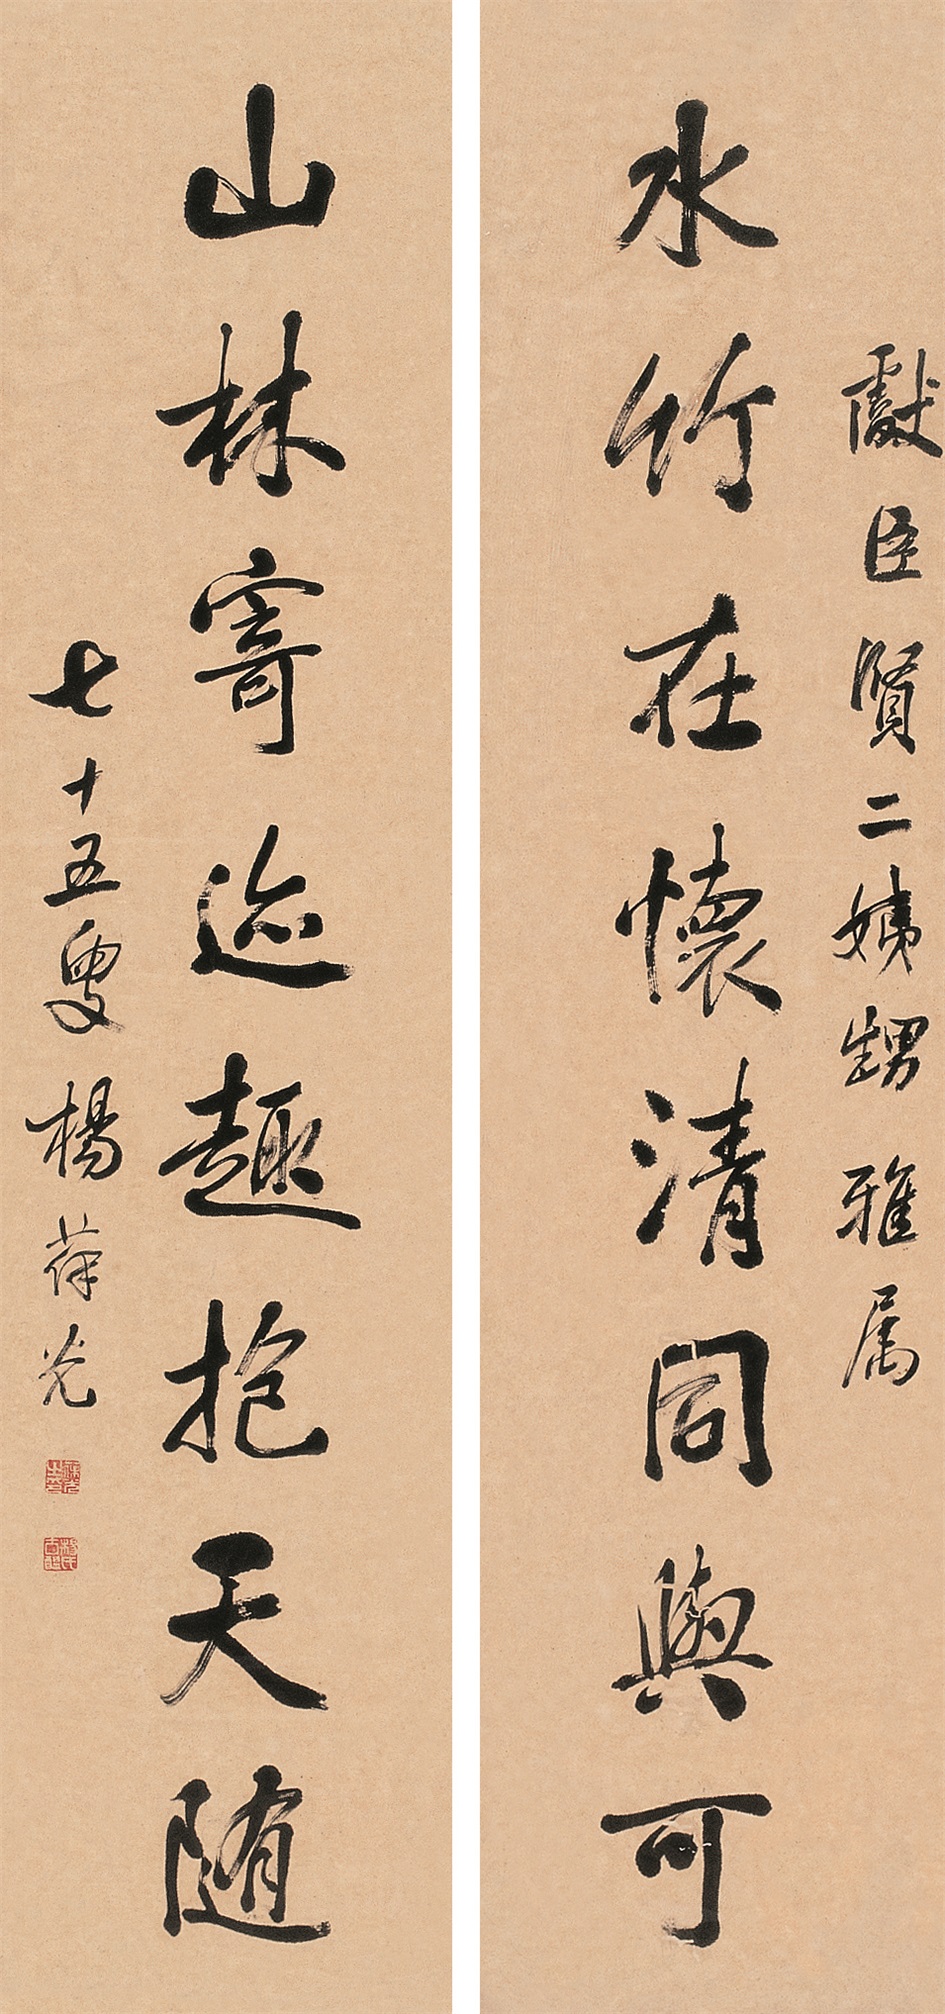 獻臣賢二姨甥雅属
水竹在懷清同與可
山林寄迹趣抱天随
七十五叟楊葆光